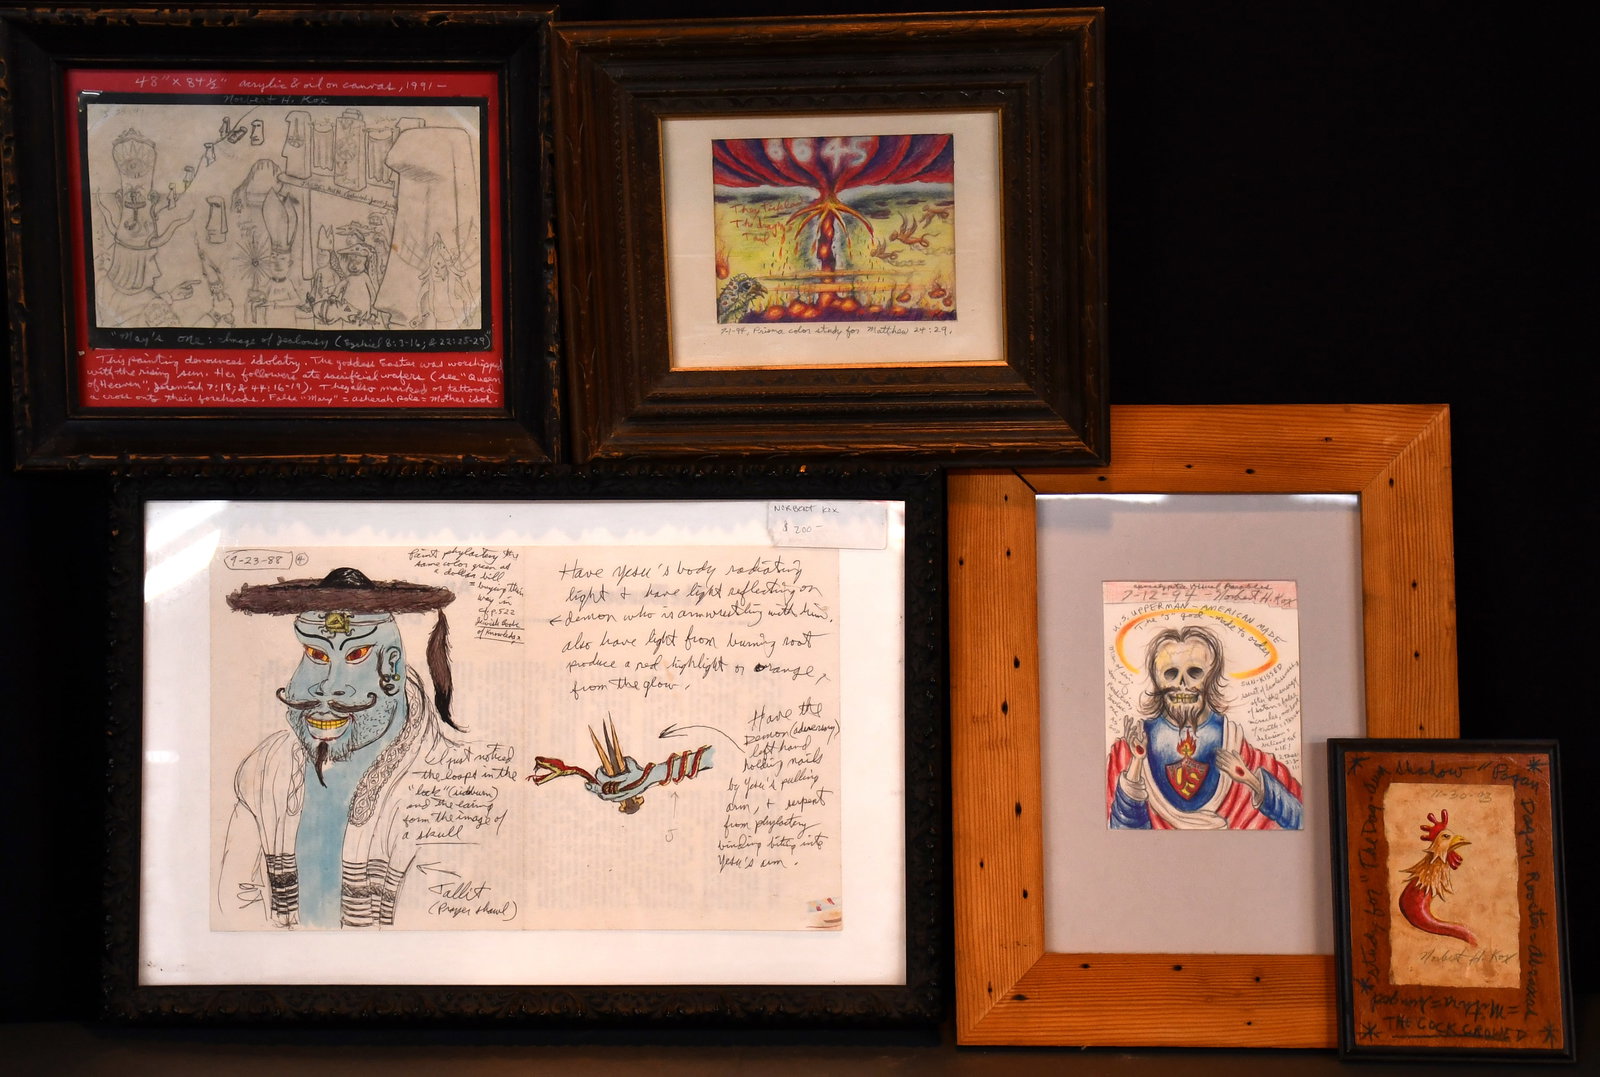 48" x 84½" acrylic & oil on canvas, 1991-
Norbert H. Kox
"Mary's one: Image of Jealousy (Ezekiel 8:3-16; & 22:25-29)
This painting denounces idolatry. The goddess Easter was worshipped
with the rising sun. Her followers ate sacrificial wafers (see "Queen
of Heaven", Jeremiah 7:18; & 44:16-19). They also marked or tattooed
a cross onto their foreheads. False "Mary" = asherah pole = Mother idol.
6645
They Tickled
The Dragon's
Tail
7-1-94, Prisma color study for Matthew 24:29,
NORBERT KOX
$ 200-
9-23-88
Paint phylactery the
same color green as
a dollar bill
= buying their
way in
cf p.522
Jewish Book
of Knowledge
Have Yesu's body radiating
light & have light reflecting on
demon who is armwrestling with him.
also have light from burning root
produce a red highlight or orange
from the glow.
I just noticed
the loops in the
"lock" (sideburn)
and the earing
form the image of
a skull
Tallit
(Prayer shawl)
Have the
Demon (adversary)
left hand
holding nails
by Yesu's pulling
arm, & serpent
from phylactery
binding biting into
Yesu's arm.
5
Apocalyptic Visual Parables
7-12-94 - Norbert H. Kox
U.S. UPPERMAN - AMERICAN MADE
The "J" god - made to order
SUN-KISSED
Study for "The Dog Day Shadow" Pagan Dagon. Rooster-
11-20-03
Norbert H. Kox
THE COCK CROWED